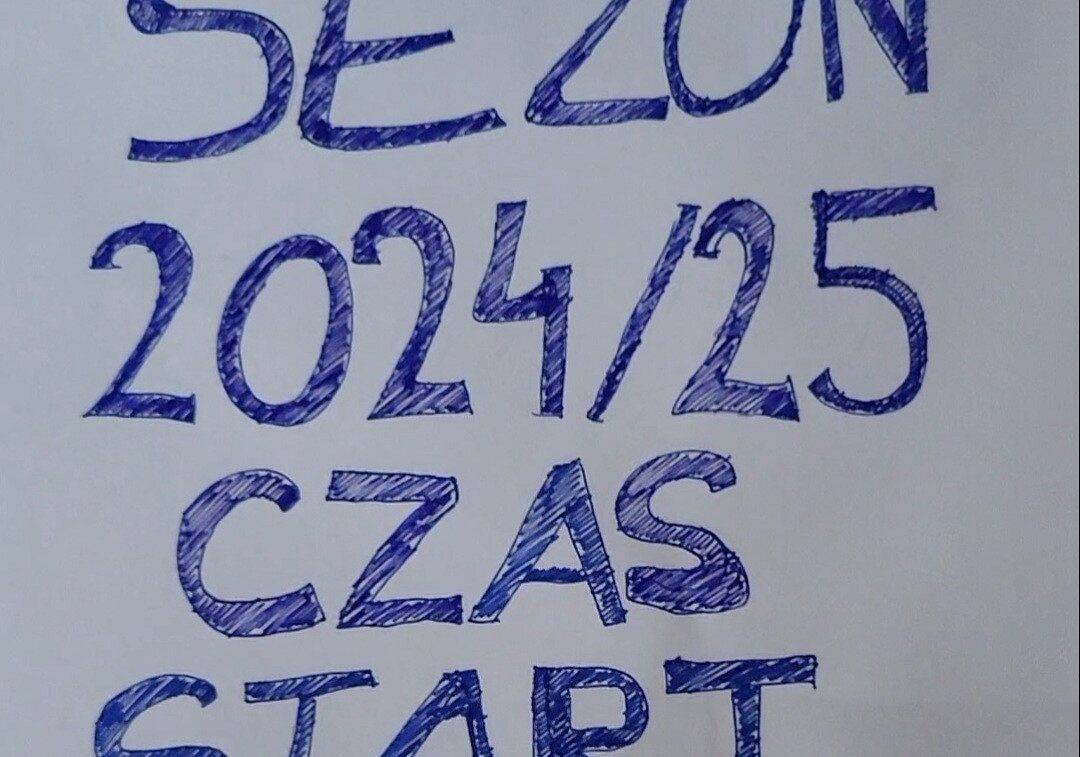 SEZON
2024/25
CZAS
START